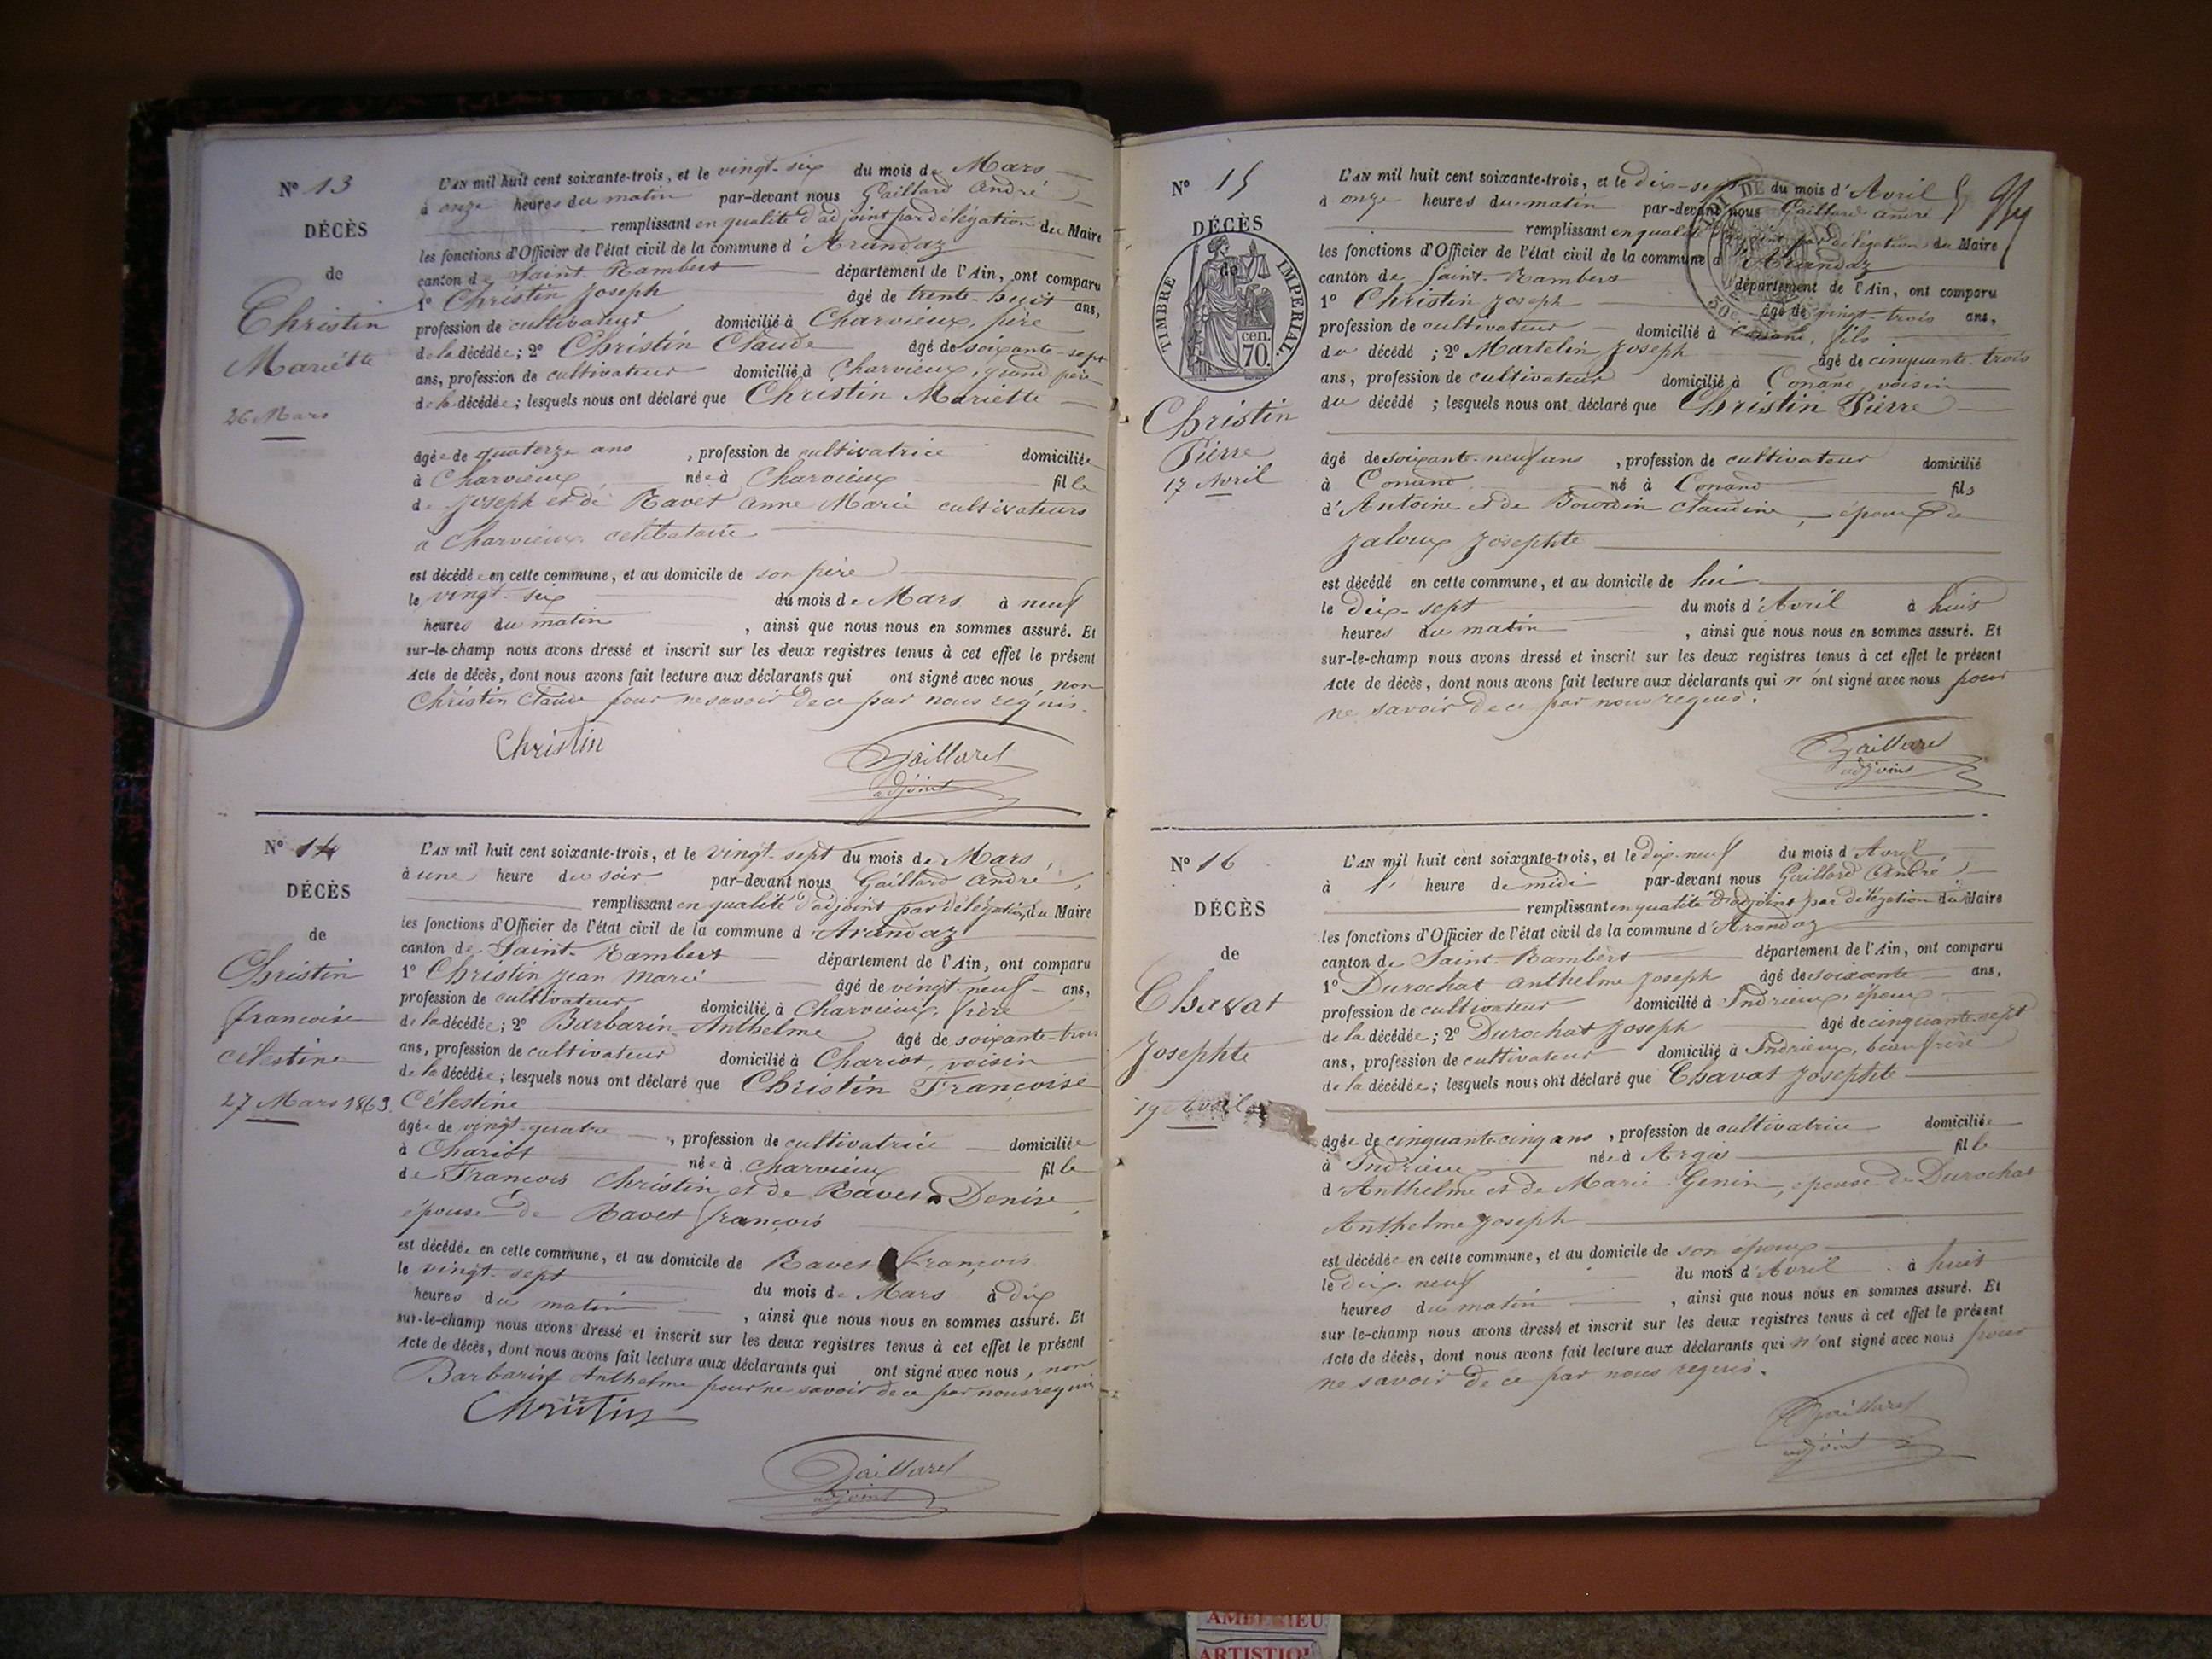 N° 13
DÉCÈS
de
Christin
Mariette
26 Mars
L'AN mil huit cent soixante-trois, et le vingt-six du mois de Mars
à onze heures du matin par-devant nous Gaillard André
remplissant en qualité d'adjoint par délégation du Maire
les fonctions d'Officier de l'état civil de la commune d'Arandaz
canton de Saint-Rambert département de l'Ain, ont comparu
1° Christin Joseph âgé de trente-huit ans,
profession de cultivateur domicilié à Charvieux, père
de la décédée; 2° Christin Claude âgé de soixante-sept
ans, profession de cultivateur domicilié à Charvieux, grand père
de la décédée; lesquels nous ont déclaré que Christin Mariette
âgée de quatorze ans, profession de cultivatrice domiciliée
à Charvieux née à Charvieux fille
de Joseph et de Ravet Anne Marie cultivateurs
à Charvieux célibataire
est décédée en cette commune, et au domicile de son père
le vingt-six du mois de Mars à neuf
heures du matin, ainsi que nous nous en sommes assuré. Et
sur-le-champ nous avons dressé et inscrit sur les deux registres tenus à cet effet le présent
Acte de décès, dont nous avons fait lecture aux déclarants qui ont signé avec nous, non
Christin Claude pour ne savoir de ce par nous requis.
Christin
Gaillard
adjoint
N° 14
DÉCÈS
de
Christin
francoise
célestine
27 Mars 1863.
L'AN mil huit cent soixante-trois, et le vingt-sept du mois de Mars,
à une heure du soir par-devant nous Gaillard André,
remplissant en qualité d'adjoint par délégation du Maire
les fonctions d'Officier de l'état civil de la commune d'Arandaz
canton de Saint-Rambert département de l'Ain, ont comparu
1° Christin Jean Marie âgé de vingt-neuf ans,
profession de cultivateur domicilié à Charvieux, frère
de la décédée; 2° Barbarin Anthelme âgé de soixante-trois
ans, profession de cultivateur domicilié à Chariot, voisin
de la décédée; lesquels nous ont déclaré que Christin Françoise
Célestine
âgée de vingt-quatre, profession de cultivatrice domiciliée
à Chariot née à Charvieux fille
de François Christin et de Ravet Denise,
épouse de Ravet françois
est décédée en cette commune, et au domicile de Ravet François
le vingt-sept du mois de Mars à dix
heures du matin, ainsi que nous nous en sommes assuré. Et
sur-le-champ nous avons dressé et inscrit sur les deux registres tenus à cet effet le présent
Acte de décès, dont nous avons fait lecture aux déclarants qui ont signé avec nous, non
Barbarin Anthelme pour ne savoir de ce par nous requis
Christin
Gaillard
adjoint
N° 15
DÉCÈS
de
TIMBRE IMPERIAL.
cen.
70.
Christin
Pierre
17 Avril
L'AN mil huit cent soixante-trois, et le dix-sept du mois d'Avril
à onze heures du matin par-devant nous Gaillard André
remplissant en qualité d'adjoint par délégation du Maire
les fonctions d'Officier de l'état civil de la commune d'Arandaz
canton de Saint-Rambert département de l'Ain, ont comparu
1° Christin Joseph âgé de vingt-trois ans,
profession de cultivateur domicilié à Conand, fils
du décédé; 2° Martelin Joseph âgé de cinquante-trois
ans, profession de cultivateur domicilié à Conand, voisin
du décédé; lesquels nous ont déclaré que Christin Pierre
âgé de soixante-neuf ans, profession de cultivateur domicilié
à Conand né à Conand fils
d'Antoine et de Bourdin Claudine, époux de
Jaloux Josephte
est décédé en cette commune, et au domicile de lui
le dix-sept du mois d'Avril à huit
heures du matin, ainsi que nous nous en sommes assuré. Et
sur-le-champ nous avons dressé et inscrit sur les deux registres tenus à cet effet le présent
Acte de décès, dont nous avons fait lecture aux déclarants qui n'ont signé avec nous pour
ne savoir de ce par nous requis.
Gaillard
adjoint
N° 16
DÉCÈS
de
Chavat
Josephte
19 Avril
L'AN mil huit cent soixante-trois, et le dix-neuf du mois d'Avril
à l' heure de midi par-devant nous Gaillard André
remplissant en qualité d'adjoint par délégation du Maire
les fonctions d'Officier de l'état civil de la commune d'Arandaz
canton de Saint-Rambert département de l'Ain, ont comparu
1° Durochat Anthelme Joseph âgé de soixante ans,
profession de cultivateur domicilié à Indrieux, époux
de la décédée; 2° Durochat Joseph âgé de cinquante-sept
ans, profession de cultivateur domicilié à Indrieux, beau frère
de la décédée; lesquels nous ont déclaré que Chavat Josephte
âgée de cinquante-cinq ans, profession de cultivatrice domiciliée
à Indrieux née à Argis fille
d'Anthelme et de Marie Genin, épouse de Durochat
Anthelme Joseph
est décédée en cette commune, et au domicile de son époux
le dix-neuf du mois d'Avril à huit
heures du matin, ainsi que nous nous en sommes assuré. Et
sur-le-champ nous avons dressé et inscrit sur les deux registres tenus à cet effet le présent
Acte de décès, dont nous avons fait lecture aux déclarants qui n'ont signé avec nous pour
ne savoir de ce par nous requis.
Gaillard
adjoint